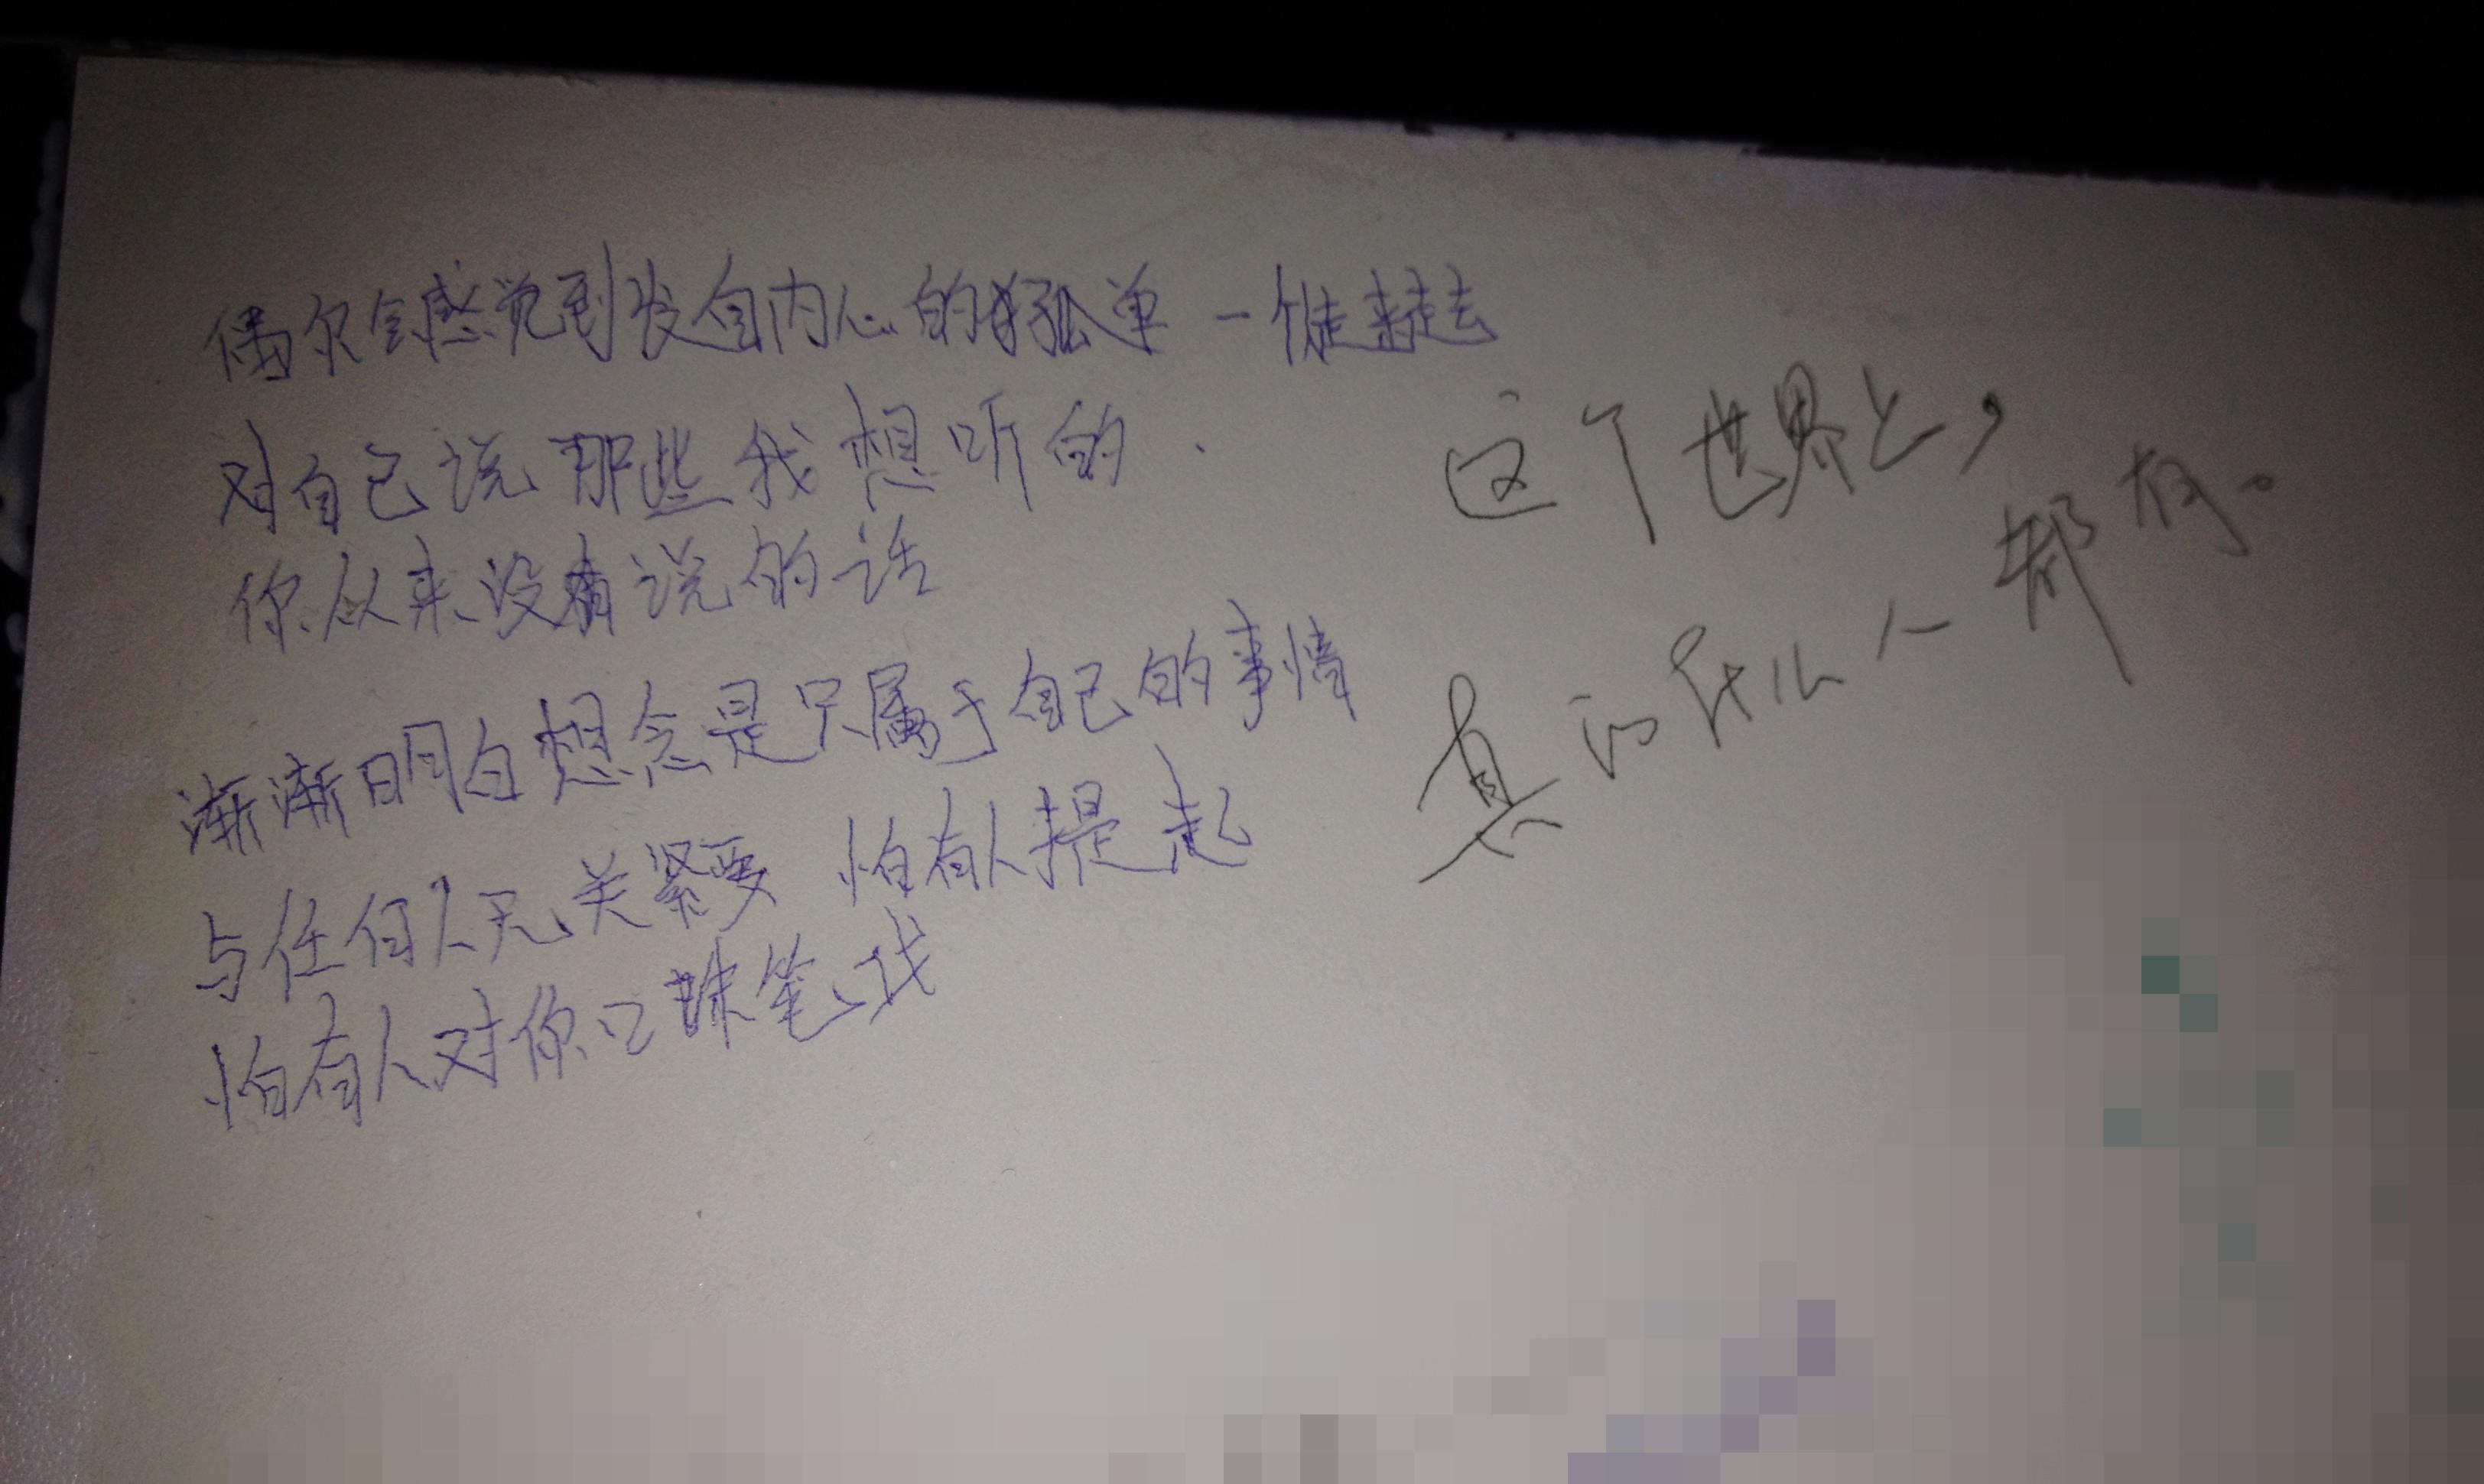 偶尔会感觉到发自内心的孤单 一个人走来走去
对自己说那些我想听的.
你从来没有说的话
渐渐明白想念是只属于自己的事情
与任何人无关紧要 怕有人提起
怕有人对你口诛笔伐
这个世界上,
真的什么人都有。